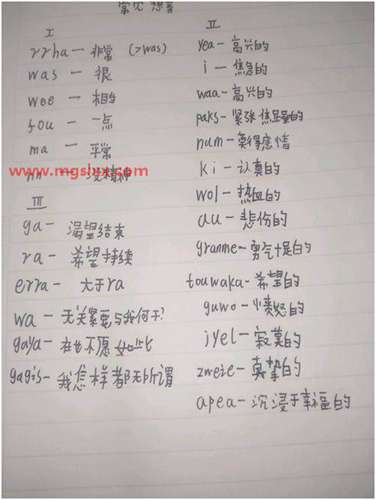 常见想音
I
rrha — 非常 (>was)
was — 很
wee — 相当
fou — 一点
ma — 平常
nn — 没精神
www.mgshu.com
III
ga — 渴望结束
ra — 希望持续
erra — 大于ra
wa — 无关紧要与我何干?
gaya — 在也不愿如此
gagis — 我怎样都无所谓
II
yea — 高兴的
i — 焦急的
waa — 高兴的
paks — 紧张焦虑的
num — 莫得感情
ki — 认真的
wol — 热血的
au — 悲伤的
granme — 勇气十足的
touwaka — 希望的
guwo — 愤怒的
iyel — 寂寞的
zweie — 真挚的
apea — 沉浸于幸福的